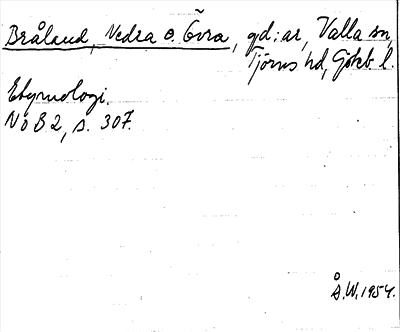 Bråland, Nedra o. Övra, gd:ar, Valla sn,
Tjörns hd, Göteb. l.
Etymologi.
NoB 2, s. 307.
Å.W. 1954.